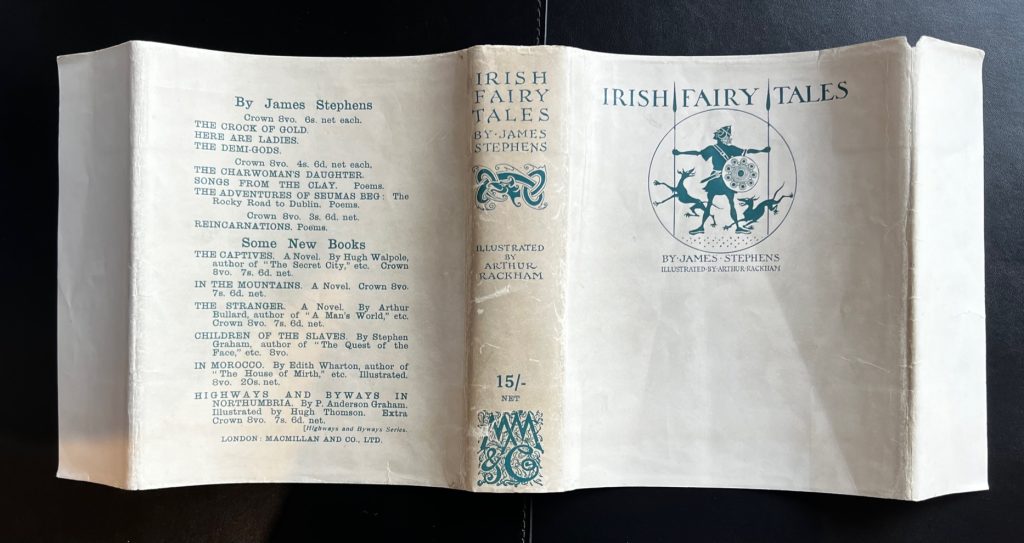 By James Stephens
Crown 8vo. 6s. net each.
THE CROCK OF GOLD.
HERE ARE LADIES.
THE DEMI-GODS.
Crown 8vo. 4s. 6d. net each.
THE CHARWOMAN'S DAUGHTER.
SONGS FROM THE CLAY. Poems.
THE ADVENTURES OF SEUMAS BEG: The
Rocky Road to Dublin. Poems.
Crown 8vo. 3s. 6d. net.
REINCARNATIONS. Poems.
Some New Books
THE CAPTIVES. A Novel. By Hugh Walpole,
author of "The Secret City," etc. Crown
8vo. 7s. 6d. net.
IN THE MOUNTAINS. A Novel. Crown 8vo.
7s. 6d. net.
THE STRANGER. A Novel. By Arthur
Bullard, author of "A Man's World," etc.
Crown 8vo. 7s. 6d. net.
CHILDREN OF THE SLAVES. By Stephen
Graham, author of "The Quest of the
Face," etc. 8vo.
IN MOROCCO. By Edith Wharton, author of
"The House of Mirth," etc. Illustrated.
8vo. 20s. net.
HIGHWAYS AND BYWAYS IN
NORTHUMBRIA. By P. Anderson Graham.
Illustrated by Hugh Thomson. Extra
Crown 8vo. 7s. 6d. net.
[Highways and Byways Series.
LONDON: MACMILLAN AND CO., LTD.
IRISH
FAIRY
TALES
BY·JAMES
STEPHENS
ILLUSTRATED
BY
ARTHUR
RACKHAM
15/-
NET
MM
& Co
IRISH FAIRY TALES
BY·JAMES·STEPHENS
ILLUSTRATED·BY·ARTHUR·RACKHAM